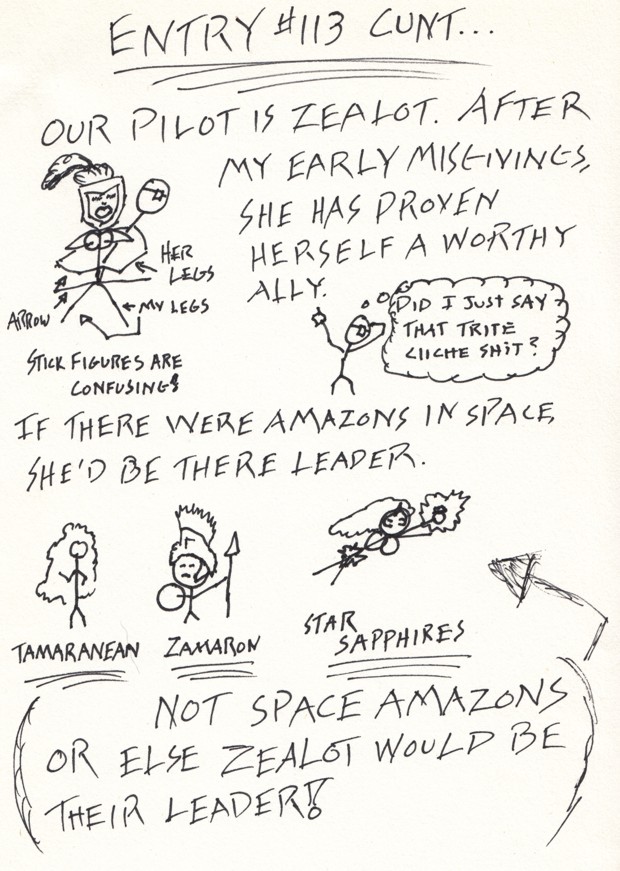 ENTRY #113 CUNT...
OUR PILOT IS ZEALOT. AFTER
MY EARLY MISGIVINGS,
SHE HAS PROVEN
HERSELF A WORTHY
ALLY.
HER
LEGS
ARROW
MY LEGS
STICK FIGURES ARE
CONFUSING!
DID I JUST SAY
THAT TRITE
CLICHE SHIT?
IF THERE WERE AMAZONS IN SPACE
SHE'D BE THERE LEADER.
TAMARANEAN
ZAMARON
STAR
SAPPHIRES
NOT SPACE AMAZONS
OR ELSE ZEALOT WOULD BE
THEIR LEADER!